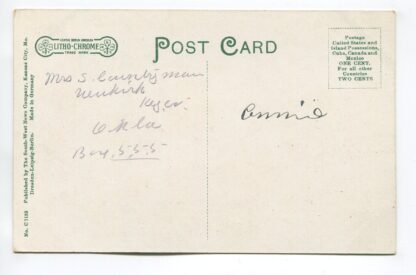 LITHO-CHROME
TRADE MARK
POST CARD
Postage
United States and
Island Possessions,
Cuba, Canada and
Mexico
ONE CENT.
For all other
Countries
TWO CENTS
Mrs S. Countryman
Newkirk
Okla
Box 555
Annie
No. C 7125 Published by The South-West News Company, Kansas City, Mo.
Dresden-Leipzig-Berlin. Made in Germany